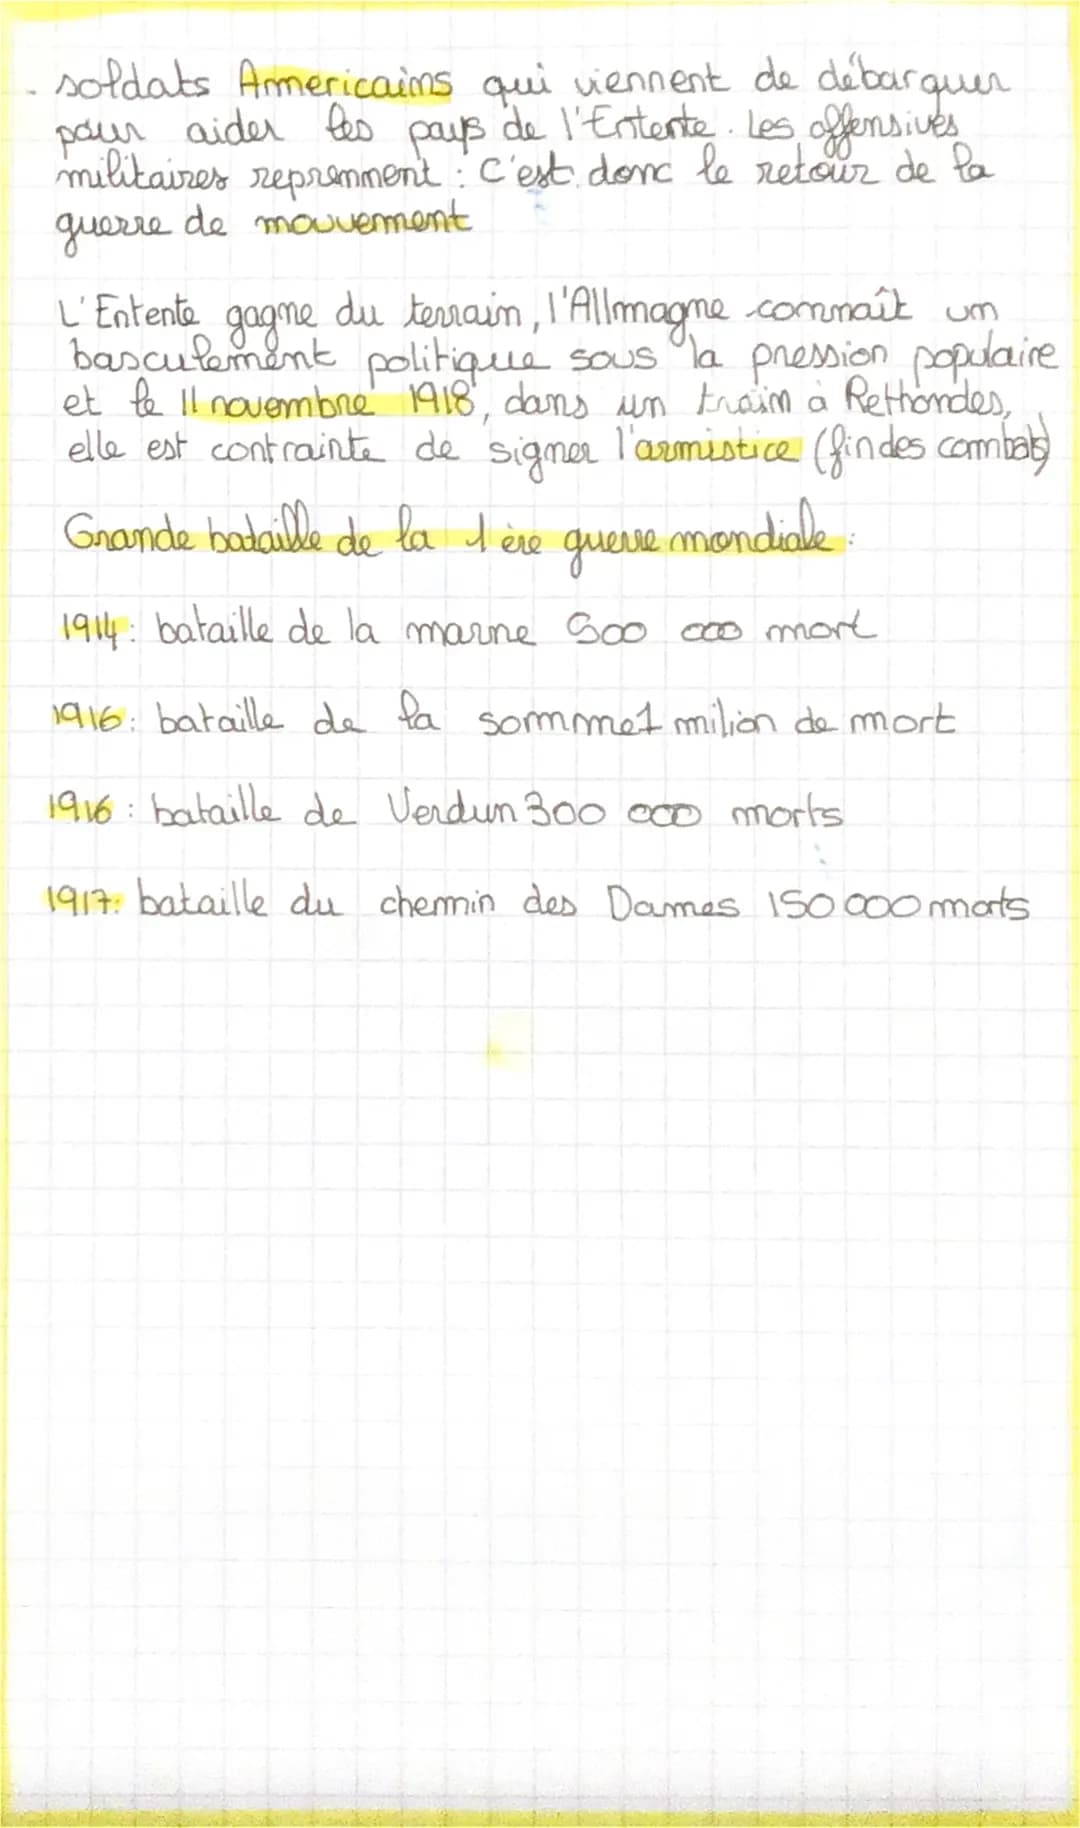 soldats Americains qui viennent de débarquer
pour aider les pays de l'Entente. Les offensives
militaires reprennent : C'est donc le retour de la
guerre de mouvement
L'Entente gagne du terrain, l'Allmagne connaît un
basculement politique sous la pression populaire
et le 11 novembre 1918, dans un train à Rethondes,
elle est contrainte de signer l'armistice (fin des combats)
Grande bataille de la 1ère guerre mondiale :
1914 : bataille de la marne 500 000 mort
1916 : bataille de la somme 1 milion de mort
1916 : bataille de Verdun 300 000 morts
1917 : bataille du chemin des Dames 150 000 morts